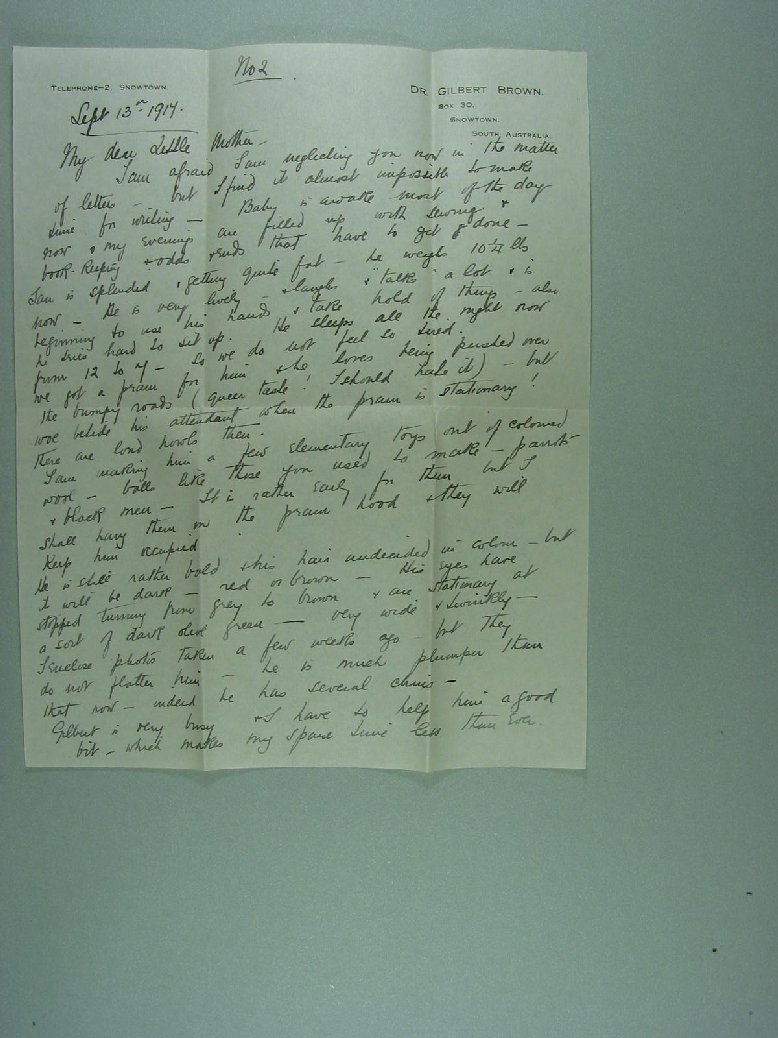 No 2
TELEPHONE-2, SNOWTOWN.
DR. GILBERT BROWN.
BOX 30.
SNOWTOWN.
SOUTH AUSTRALIA.
Sept 13th 1914.
My dear Little Mother -
I am afraid I am neglecting you now in the matter
of letters - but I find it almost impossible to make
time for writing - Baby is awake most of the day
now & my evenings are filled up with sewing &
book-keeping & odds & ends that have to get done -
Ian is splendid & getting quite fat - he weighs 10 1/4 lbs
now - He is very lively - & laughs & talks a lot & is
beginning to use his hands & take hold of things - also
he tries hard to sit up. He sleeps all the night now
from 12 to 7 - so we do not feel so tired.
we got a pram for him & he loves being pushed over
the bumpy roads (queer taste! I should hate it) - but
woe betide his attendant when the pram is stationary!
There are loud howls then.
I am making him a few elementary toys out of coloured
wool - balls like those you used to make - parrots
& black men - It is rather early for them but I
shall hang them on the pram hood & they will
keep him occupied
He is still rather bald & his hair undecided in colour - but
it will be dark - red or brown - His eyes have
stopped turning from grey to brown & are stationary at
a sort of dark olive green - very wide & twinkly -
I enclose photos taken a few weeks ago - but they
do not flatter him - he is much plumper than
that now - indeed he has several chins -
Gilbert is very busy & I have to help him a good
bit - which makes my spare time less than ever.